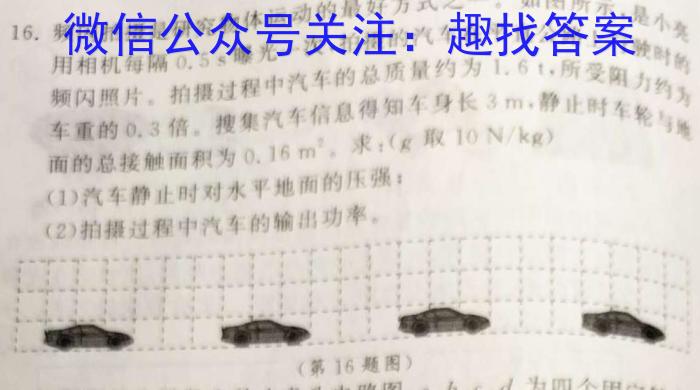 微信公众号关注：趣找答案
16. 频
研究物体运动的最好方式之一。如图所示，是小亮
用相机每隔0.5 s曝光
的汽车
驶时的
频闪照片。拍摄过程中汽车的总质量约为1.6 t，所受阻力约为
车重的0.3倍。搜集汽车信息得知车身长3 m，静止时车轮与地
面的总接触面积为0.16 m²。求：(g取10 N/kg)
(1)汽车静止时对水平地面的压强；
(2)拍摄过程中汽车的输出功率。
(第16题图)
为四个